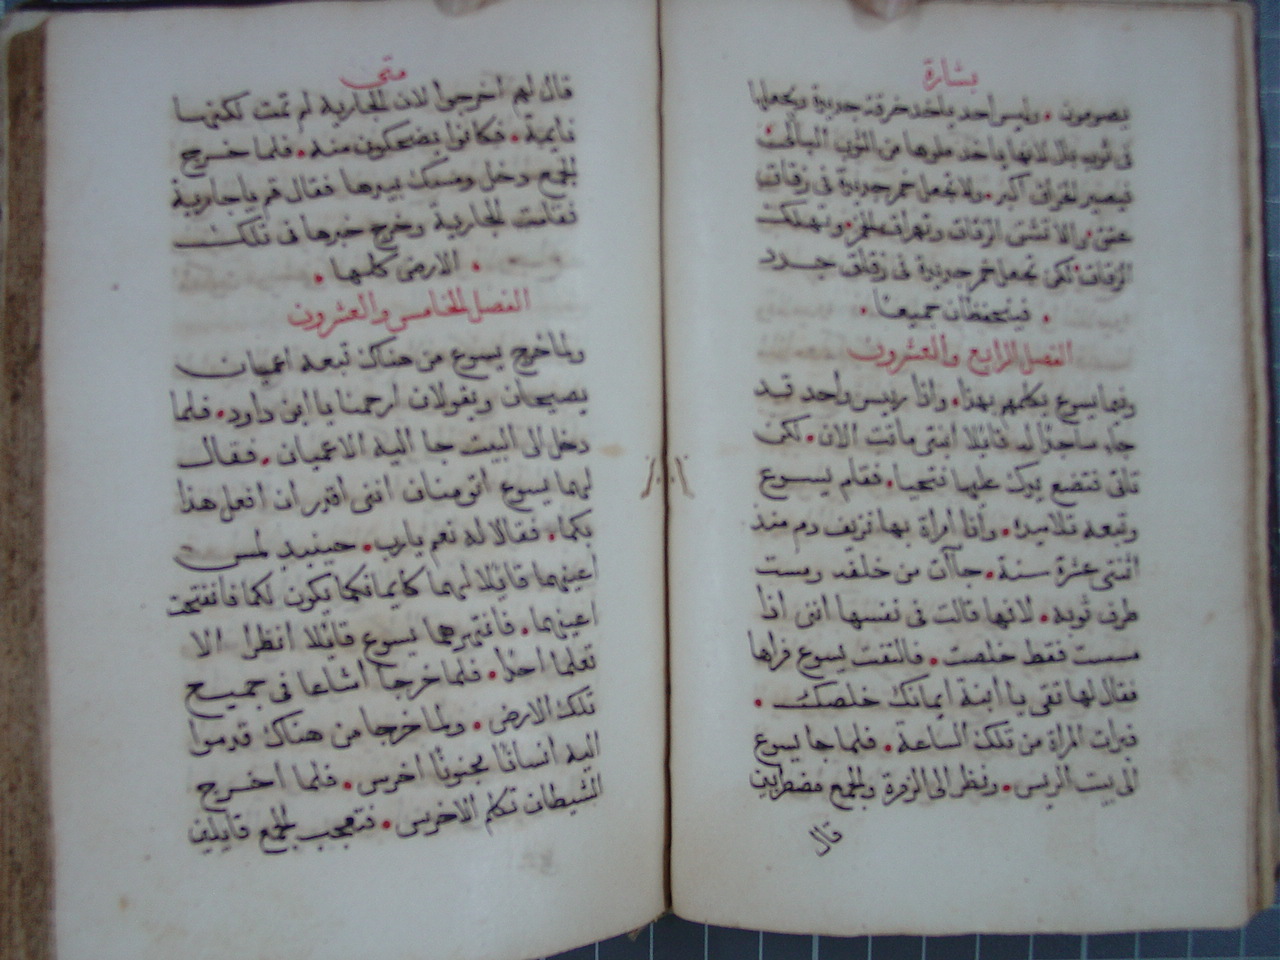 بشارة
يصومون • وليس احد ياخد خرقة جديدة ويجعلها
فى ثوب بال لانها ياخد ملوها من الثوب البالى
فيصير الخرق اكبر • ولا تجعل خمر جديدة فى زقاق
عتق • والا تنشق الزقاق وتهراق الخمر • وتهلك
الزقاق • لكن تجعل خمر جديدة فى زقاق جدد
• فيتحفظان جميعا •
الفصل الرابع والعشرون
وفيما يسوع يكلمهم بهذا • واذا رييس واحد قد
جاء ساجدًا له قايلا ابنتى ماتت الان • لكن
تاتى فتضع يدك عليها فتحيا • فقام يسوع
وتبعه تلاميده • واذا امراة بها نزيف دم منذ
اثنتى عشرة سنة • جاآت من خلفه ومست
طرف ثوبه • لانها قالت فى نفسها اننى اذا
مسست فقط خلصت • فالتفت يسوع فراها
فقال لها ثقى يا ابنة ايمانك خلصك •
فبرات المراة من تلك الساعة • فلما جا يسوع
الى بيت الريس • ونظر الى الزمرة والجمع مضطربين
قال
متى
قال لهم اخرجوا لان الجارية لم تمت لكنها
نايمة • فكانوا يضحكون منه • فلما خرج
الجمع دخل ومسك بيدها فقال قم يا جارية
فقامت الجارية وخرج خبرها فى تلك
• الارض كلها •
الفصل الخامس والعشرون
ولما خرج يسوع من هناك تبعه اعميان
يصيحان ويقولان ارحمنا يا ابن داود • فلما
دخل الى البيت جا اليه الاعميان • فقال
لهما يسوع اتومنان اننى اقدر ان افعل هذا
بكما • فقالا له نعم يارب • حينيد لمس
اعينهما قايلا لهما كايمانكما يكون لكما فانفتحت
اعينهما • فانتهرهما يسوع قايلا انظرا الا
تعلما احدًا • فلما خرجا اشاعا فى جميع
تلك الارض • ولما خرجا من هناك قدموا
اليه انسانا مجنونا اخرس • فلما اخرج
الشيطان تكلم الاخرس • فتعجب الجمع قايلين